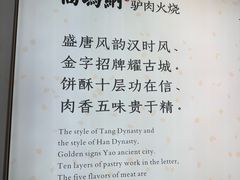 驴肉火烧
盛唐风韵汉时风、
金字招牌耀古城.
饼酥十层功在信、
肉香五味贵于精.
The style of Tang Dynasty and
the style of Han Dynasty,
Golden signs Yao ancient city.
Ten layers of pastry work in the letter,
The five flavors of meat are